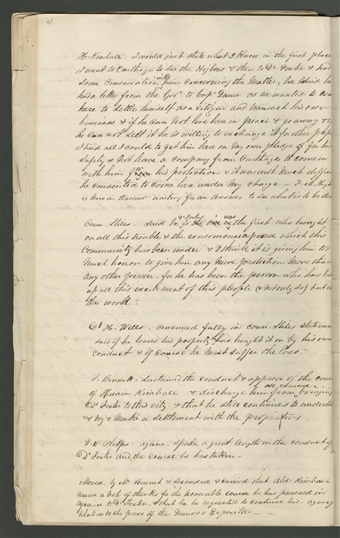 H. Kimball. I would just state what I know in the first place
I went to Carthage to see the Higbees & then to Dr Foster & had
some conversation with him concerning the matter, he said he
had a letter from the Govr to Capt Dunn as he wanted to come
here to settle himself as a citizen and transact his own
business & if he can not live here in peace & go away & if
he can not sell it he is willing to exchange it for other property
I tried all I could to get him here on my own pledge for his
safety & not have a company from Carthage to come in
with him for his protection & it was with much difficulty
he consented to come here under my charge - D. M. Higbee
is now in Warsaw waiting for an answer to see what is to be done

Coun. Stiles. said he is the first who brought
on all this trouble & the enormous expense which this
community has been under & I think it is giving him too
much honor to give him any more protection more than
any other person. for he has been the person who has
up all this excitement of this people (& not only so) but
the world.

D. H. Wells. concurred fully in coun. Stiles statement
said if he loses his property he has brought it on by his own
conduct & of course he must suffer the loss.

S. Bennett. sustained the conduct & approve of the course
of Hiram Kimball & discharge him from bringing
Dr Foster to this city & that he still continues to
& try & make a settlement with the proprietors.

W. W. Phelps. again spoke a great length on the conduct of
Dr Foster and the course he has taken.

Moved. by Mr Bennett & seconded & carried that Ald. Kimball
a vote of thanks for the honorable course he has pursued in
to Dr Foster, & that he be requested to continue his agency
relative to the press of the Nauvoo Expositor -